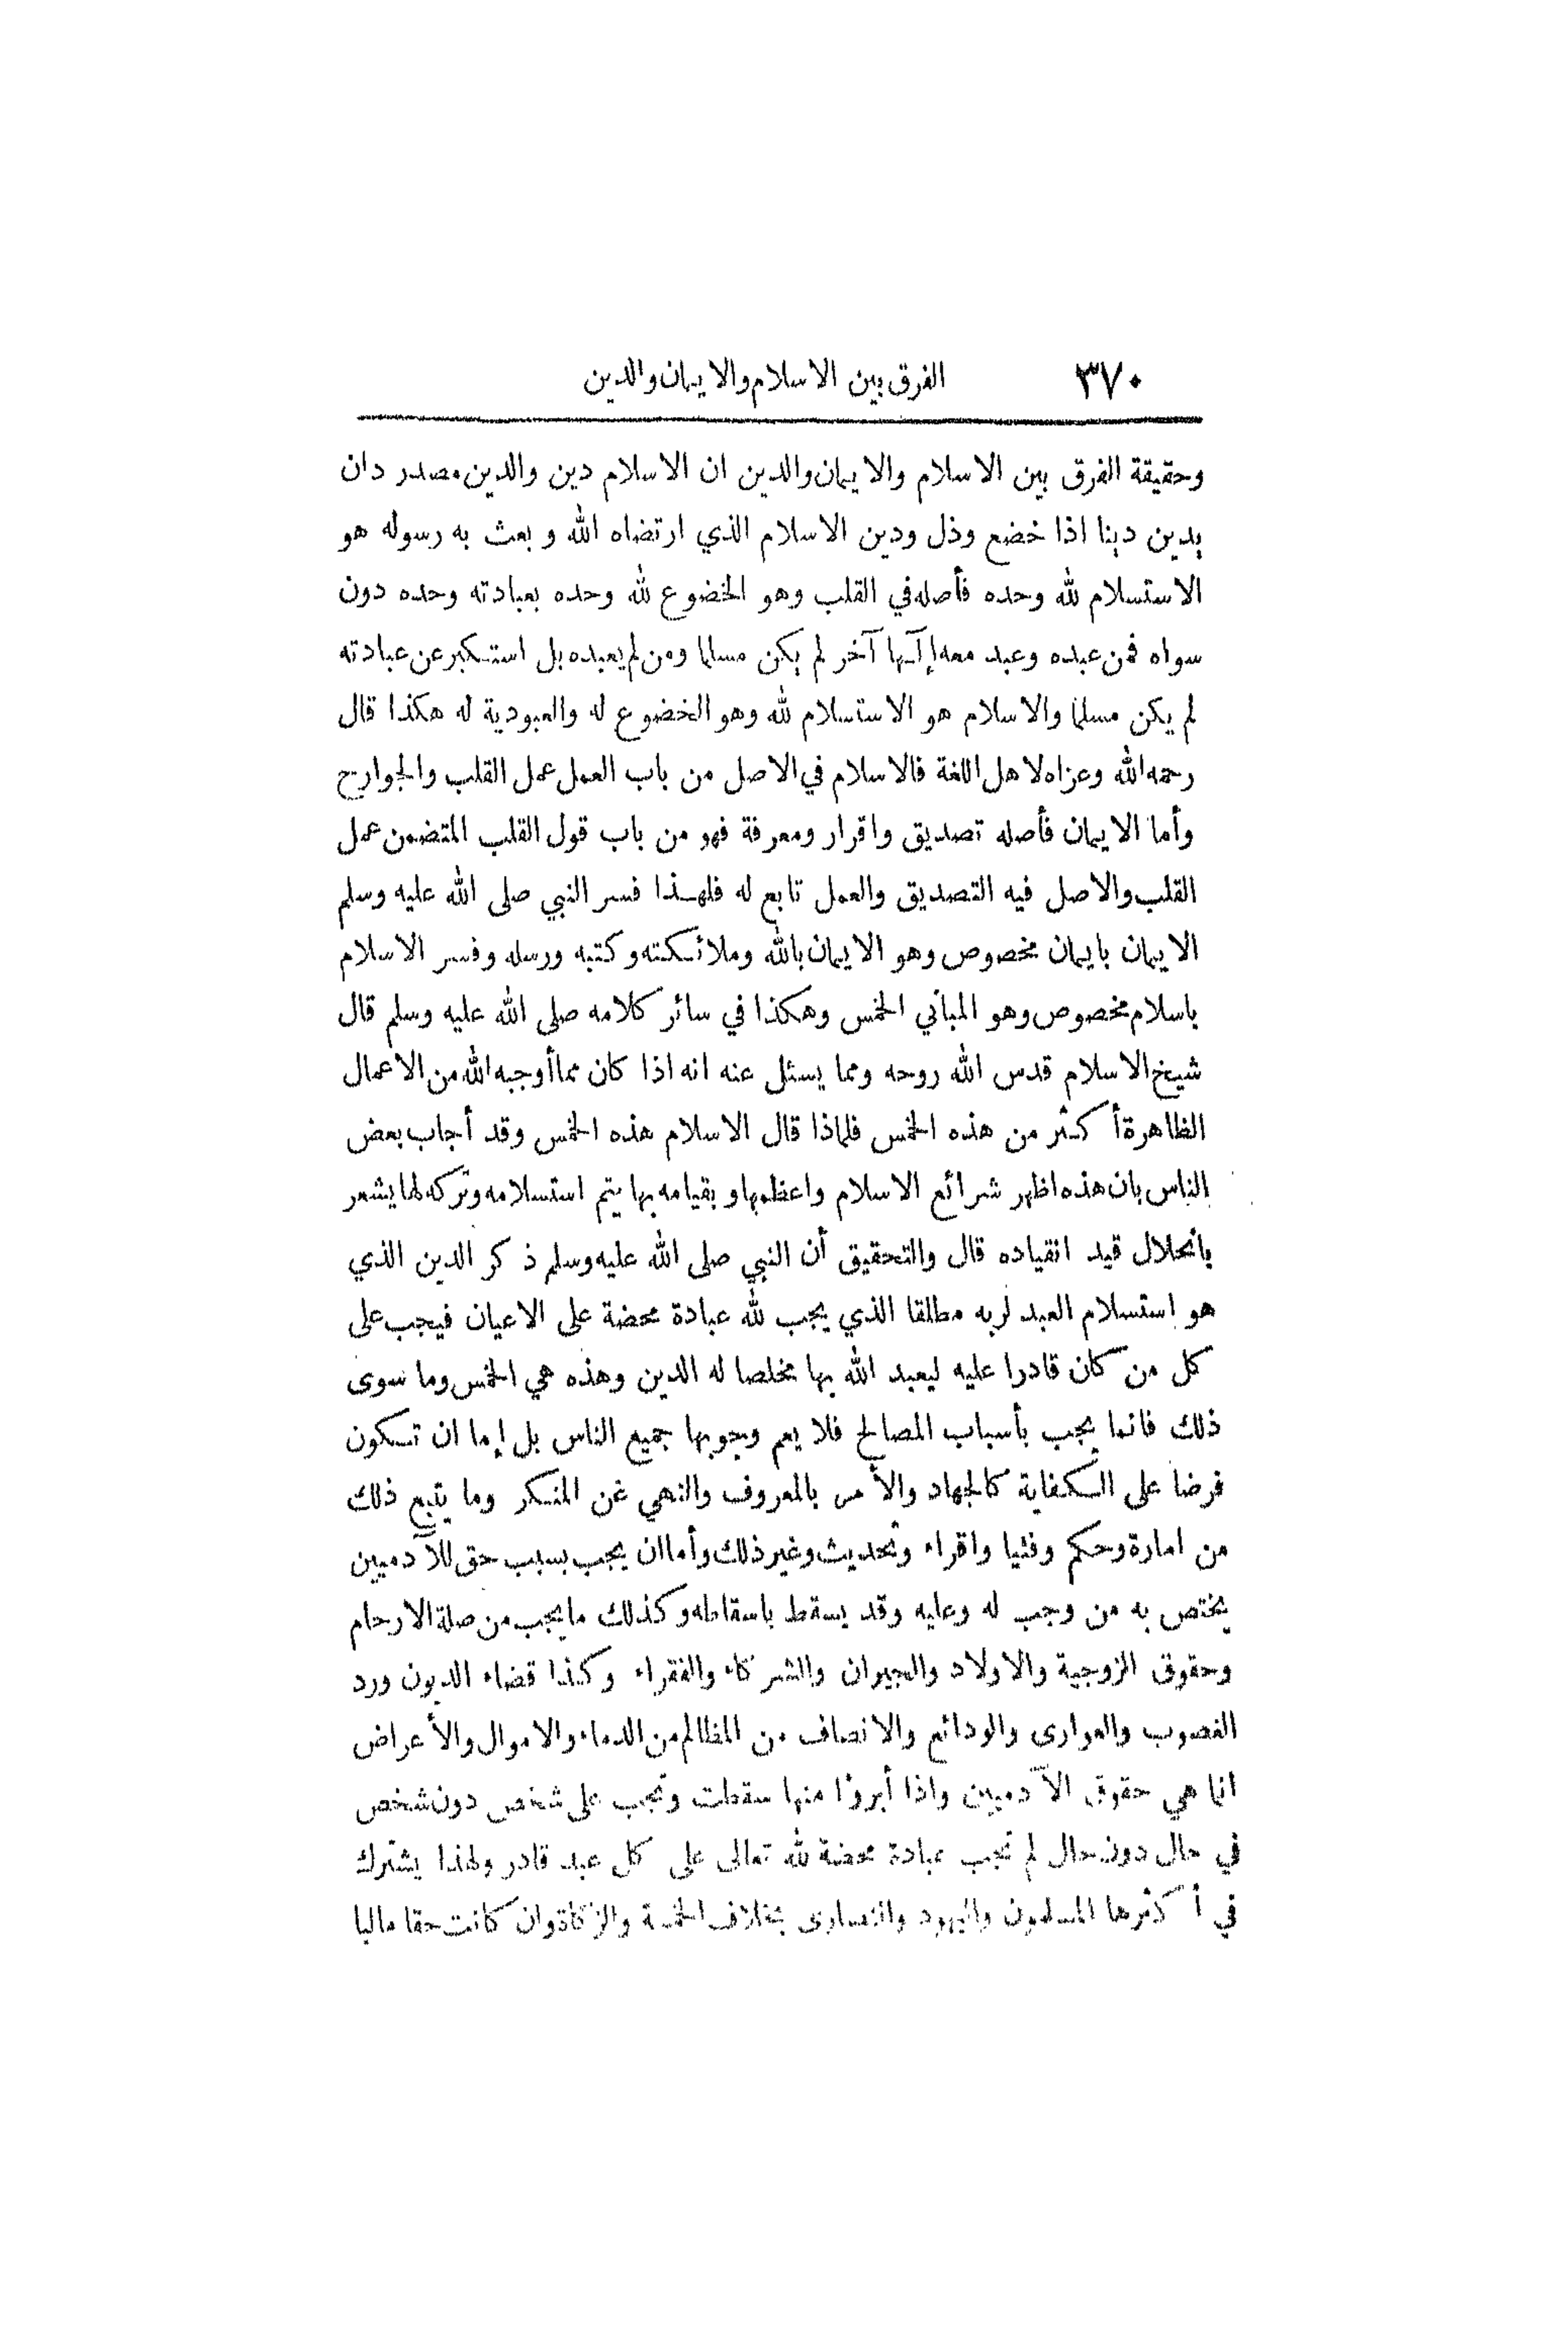 ٣٧٠ الفرق بين الاسلام والايمان والدين
وحقيقة الفرق بين الاسلام والايمان والدين ان الاسلام دين والدين مصدر دان
يدين دينا اذا خضع وذل ودين الاسلام الذي ارتضاه الله وبعث به رسوله هو
الاستسلام لله وحده فأصله في القلب وهو الخضوع لله وحده بعبادته وحده دون
سواه فمن عبده وعبد معه إلـها آخر لم يكن مسلما ومن لم يعبده بل استكبر عن عبادته
لم يكن مسلما والاسلام هو الاستسلام لله وهو الخضوع له والعبودية له هكذا قال
رحمه الله وعزاه لاهل اللغة فالاسلام في الاصل من باب العمل عمل القلب والجوارح
وأما الايمان فأصله تصديق واقرار ومعرفة فهو من باب قول القلب المتضمن عمل
القلب والاصل فيه التصديق والعمل تابع له فلهذا فسر النبي صلى الله عليه وسلم
الايمان بايمان مخصوص وهو الايمان بالله وملائكته وكتبه ورسله وفسر الاسلام
باسلام مخصوص وهو المباني الخمس وهكذا في سائر كلامه صلى الله عليه وسلم قال
شيخ الاسلام قدس الله روحه ومما يسئل عنه انه اذا كان مما أوجبه الله من الاعمال
الظاهرة أكثر من هذه الخمس فلماذا قال الاسلام هذه الخمس وقد أجاب بعض
الناس بان هذه اظهر شرائع الاسلام واعظمها وبقيامه بها يتم استسلامه وتركه لها يشعر
بانحلال قيد انقياده قال والتحقيق أن النبي صلى الله عليه وسلم ذكر الدين الذي
هو استسلام العبد لربه مطلقا الذي يجب لله عبادة محضة على الاعيان فيجب على
كل من كان قادرا عليه ليعبد الله بها مخلصا له الدين وهذه هي الخمس وما سوى
ذلك فانما يجب بأسباب المصالح فلا يعم وجوبها جميع الناس بل إما ان تكون
فرضا على الكفاية كالجهاد والأمر بالمعروف والنهي عن المنكر وما يتبع ذلك
من امارة وحكم وفتيا واقراء وتحديث وغير ذلك وأما ان يجب بسبب حق للآدميين
يختص به من وجب له وعليه وقد يسقط باسقاطه وكذلك ما يجب من صلة الارحام
وحقوق الزوجية والاولاد والجيران والشركاء والفقراء وكذا قضاء الديون ورد
الغصوب والعوارى والودائع والانصاف من المظالم من الدماء والاموال والأعراض
انما هي حقوق الآدميين واذا أبرؤا منها سقطت وتجب على شخص دون شخص
في حال دون حال لم تجب عبادة محضة لله تعالى على كل عبد قادر ولهذا يشترك
في أكثرها المسلمون واليهود والنصارى بخلاف الخمسة والزكاة وان كانت حقا ماليا